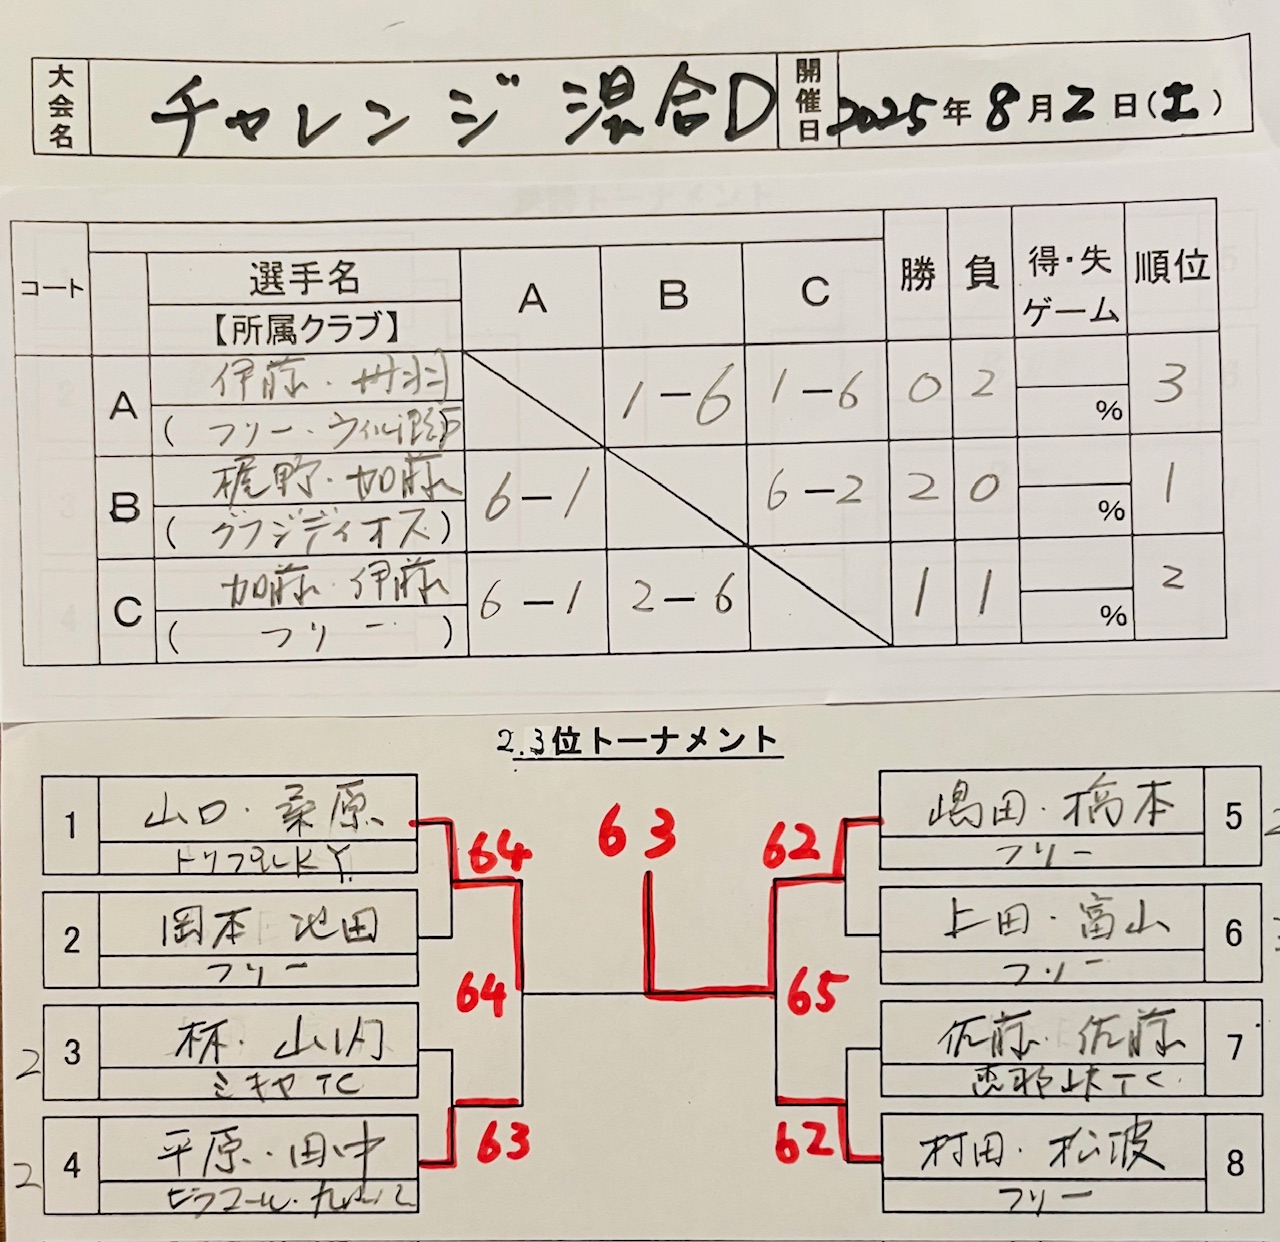 大会名 チャレンジ 混合D 開催日 2025年8月2日(土)
コート 選手名 A B C 勝 負 得・失ゲーム 順位
【所属クラブ】
A 伊藤・ 1-6 1-6 0 2 % 3
(フリー・
B 梶野・加藤 6-1 6-2 2 0 % 1
(グラジディオズ)
C 加藤・伊藤 6-1 2-6 1 1 % 2
(フリー)
2.3位トーナメント
1 山口・桑原
トリプルKY
2 岡本 池田
フリー
2 3 林・山内
ミキヤTC
2 4 平原・田中
64
64
63
63
62
65
62
嶋田・橋本 5
フリー
上田・富山 6
フリー
佐藤・佐藤 7
恵那峡TC
村田・松波 8
フリー